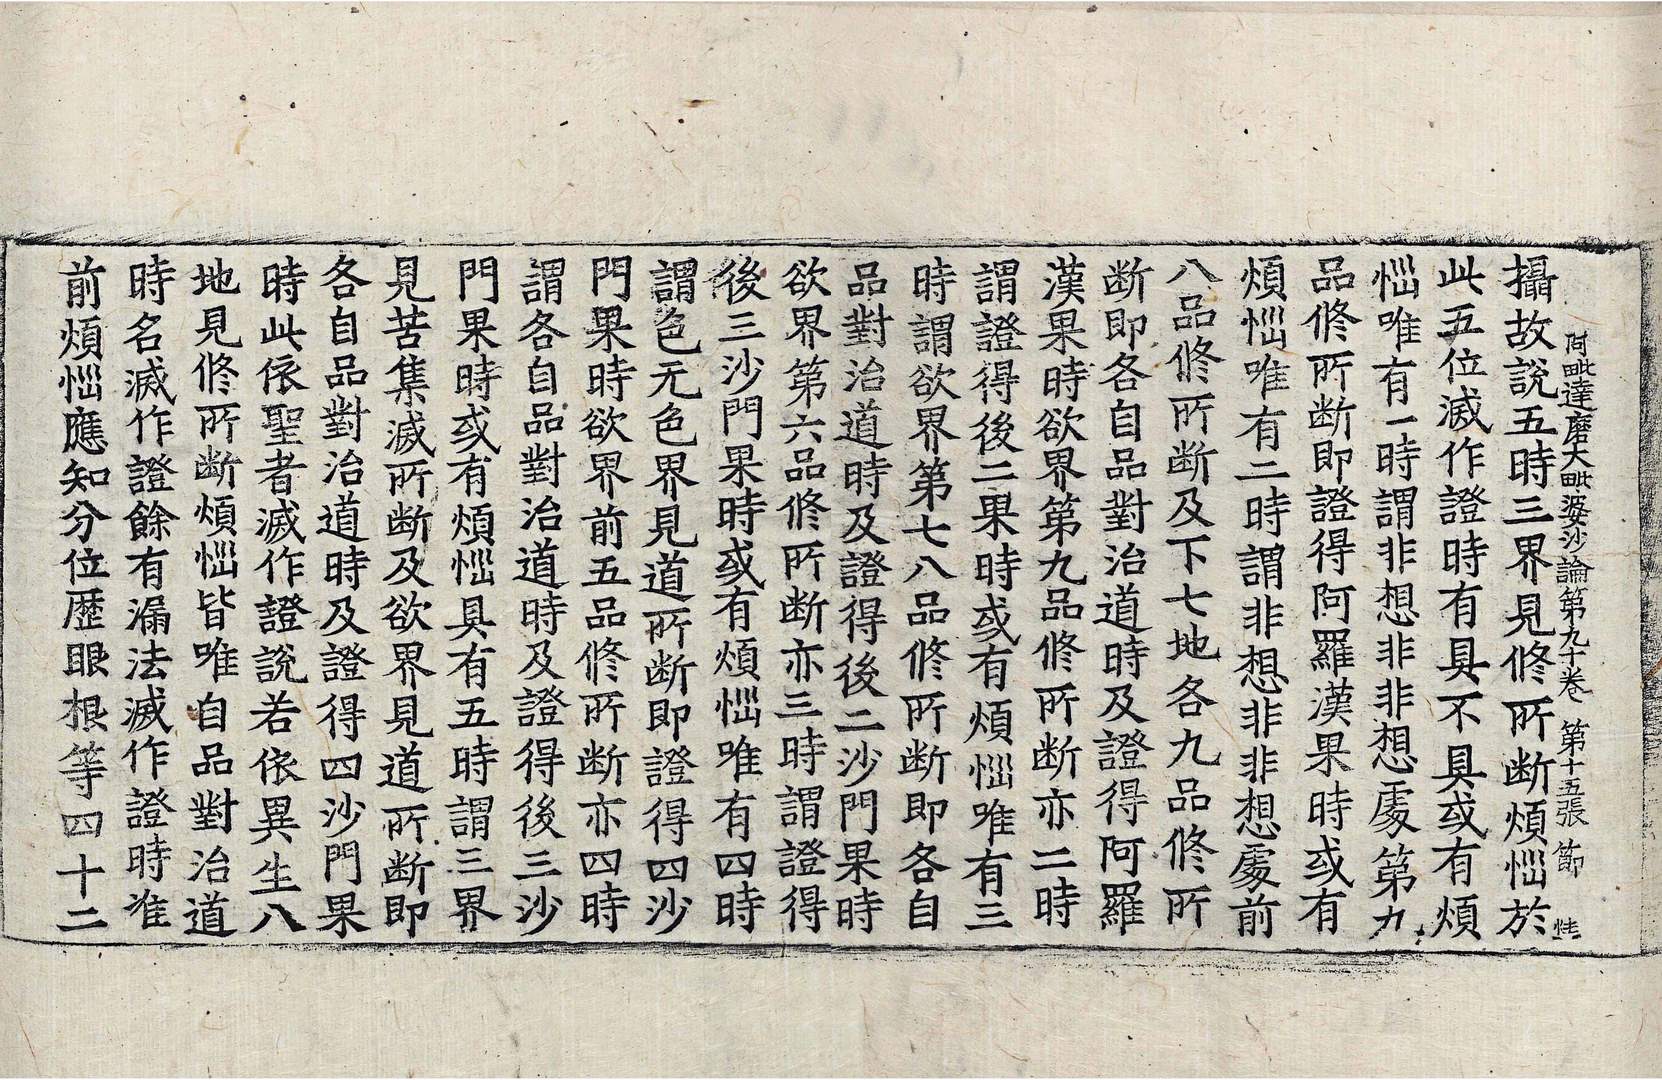 阿毗達磨大毗婆沙論第九十卷　第十五張　節
攝故說五時三界見修所斷煩惱於
此五位滅作證時有具不具或有煩
惱唯有一時謂非想非非想處第九
品修所斷即證得阿羅漢果時或有
煩惱唯有二時謂非想非非想處前
八品修所斷及下七地各九品修所
斷即各自品對治道時及證得阿羅
漢果時欲界第九品修所斷亦二時
謂證得後二果時或有煩惱唯有三
時謂欲界第七八品修所斷即各自
品對治道時及證得後二沙門果時
欲界第六品修所斷亦三時謂證得
後三沙門果時或有煩惱唯有四時
謂色无色界見道所斷即證得四沙
門果時欲界前五品修所斷亦四時
謂各自品對治道時及證得後三沙
門果時或有煩惱具有五時謂三界
見苦集滅所斷及欲界見道所斷即
各自品對治道時及證得四沙門果
時此依聖者滅作證說若依異生八
地見修所斷煩惱皆唯自品對治道
時名滅作證餘有漏法滅作證時准
前煩惱應知分位歷眼根等四十二